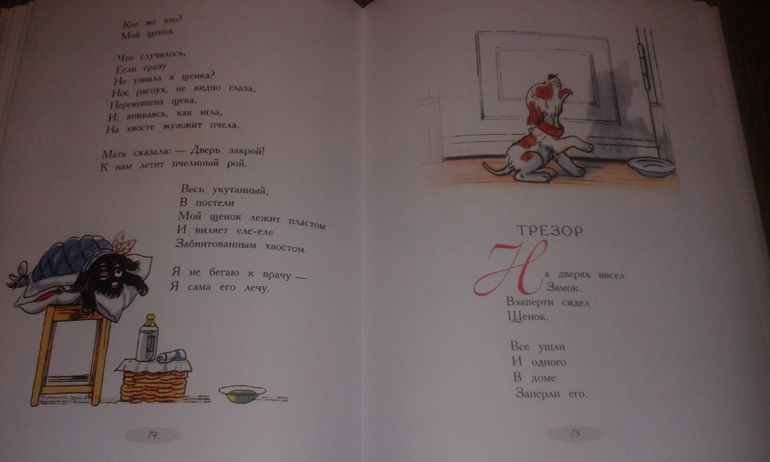 Кто же это?
Мой щенок.
Что случилось,
Если сразу
Не узнала я щенка?
Нос распух, не видно глаза,
Перекошена щека,
И, впиваясь, как игла,
На хвосте жужжит пчела.
Мать сказала: — Дверь закрой!
К нам летит пчелиный рой.
Весь укутанный,
В постели
Мой щенок лежит пластом
И виляет еле-еле
Забинтованным хвостом.
Я не бегаю к врачу —
Я сама его лечу.
74
ТРЕЗОР
На дверях висел
Замок.
Взаперти сидел
Щенок.
Все ушли
И одного
В доме
Заперли его.
75